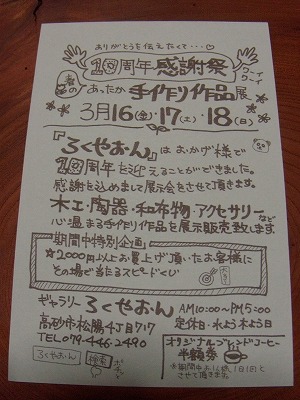 ありがとうを伝えたくて・・・♡
10周年感謝祭
ワーイ ワーイ
春の
あったか 手作り作品展
3月16(金)・17(土)・18(日)
『ろくやおん』はおかげ様で
10周年を迎えることができました。
感謝を込めまして展示会をさせて頂きます。
木工・陶器・和布物・アクセサリーなど
心温まる手作り作品を展示販売致します
期間中特別企画
☆2,000円以上お買上げ頂いたお客様に
その場で当るスピードくじ
ギャラリー ろくやおん
AM10:00〜PM5:00
高砂市松陽4丁目717
定休日・水よう木よう日
TEL079-446-2490
オリジナルブレンドコーヒー
半額券
ろくやおん 検索 ポチッ
させて頂きます。